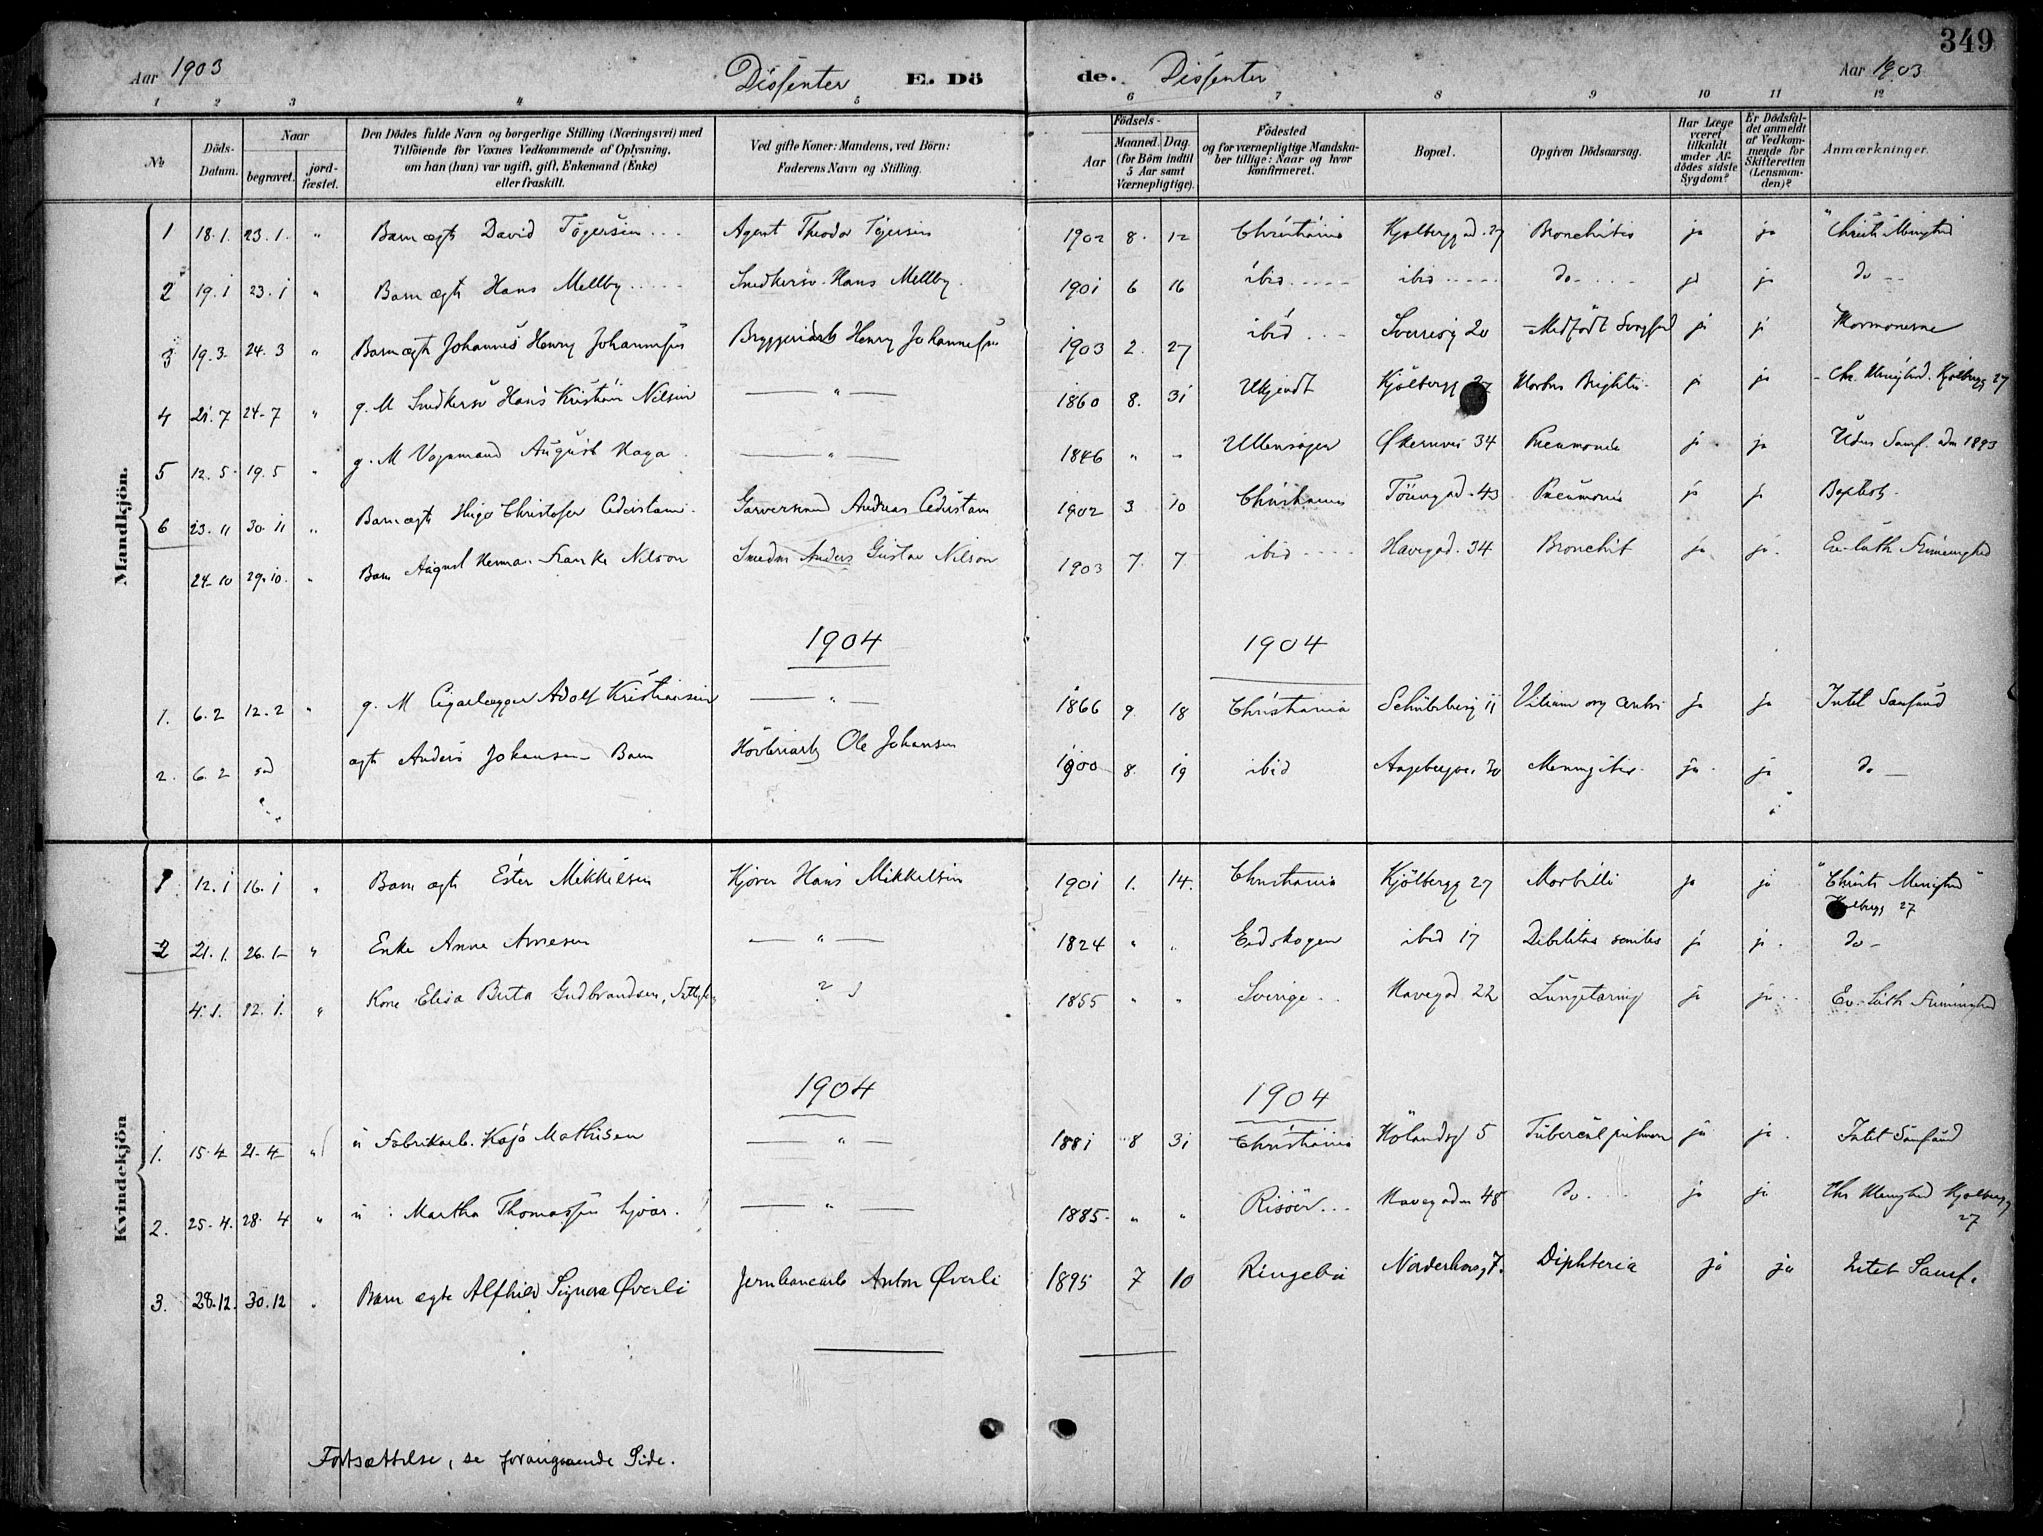 349
Aar 1903 Dissenter E. Dö de. Dissenter Aar 1903
1 2 3 4 5 6 7 8 9 10 11 12
No
Döds-Datum.
Naar
begravet.
jord-fæstet.
Den Dödes fulde Navn og borgerlige Stilling (Næringsvei) med
Tilföiende for Voxnes Vedkommende af Oplysning,
om han (hun) var ugift, gift, Enkemand (Enke)
eller fraskilt.
Ved gifte Koner: Mandens, ved Börn:
Faderens Navn og Stilling.
Födsels-
Aar
Maaned. Dag.
(for Börn indtil
5 Aar samt
Værnepligtige).
Födested
og for værnepligtige Mandska-
ber tillige: Naar og hvor
konfirmeret.
Bopæl.
Opgiven Dödsaarsag.
Har Læge
været
tilkaldt
under Af-
dödes sidste
Sygdom?
Er Dödsfal-
det anmeldt
af Vedkom-
mende for
Skifteretten
(Lensman-
den)?
Anmærkninger.
Mandkjön.
1 18.1. 23.1. " Barn ægte David Tögersen Agent Theodor Tögersen 1902 8. 12 Christiania Kjølberggad. 27 Bronchites ja ja "Christi Menighed
2 19.1 23.1 " Barn ægte Hans Mellby Snedkersv. Hans Mellby. 1901 6 16 ibid ibid do ja ja do
3 19.3 24.3 " Barn ægte Johannes Henry Johannesen Bryggeriarb Henry Johannesen 1903 2. 27 ibid Sverresg 20 Medfödt ja ja Mormonerne
4 21.7 24.7 " g. M Snedkersv Hans Kristian Nilsen " 1860 8. 31 Ukjendt Kjölbergg 27 Morbus Brightii ja ja Chr. Menighed. Kjølbergg 27
5 12.5 19.5 " g. M Vognmand August Haga " 1846 " " Ullensager Økernvei 34 Pneumonia ja ja Udm Samf. udm 1893
6 23.11 30.11 " Barn ægte Hugo Christofer Garversvend Andreas 1902 3 10 Christiania Töiengad. 43 Pneumonia ja ja Baptist.
24.10 29.10. " Barn August Herman Nilson Smedm Anders Gustav Nilson 1903 7. 7 ibid Havegad. 34 Bronchit ja ja. Ev-luth Frimenighed
1904 1904
1. 6.2 12.2 " g. M Cigarlægger Adolf Kristiansen " 1866 9. 18 Christiania Schübelerg 11 Vitium org cordis ja ja Intet Samfund
2. 6.2 ægte Anders Johansen Barn Høvleriarb Ole Johansen 1900 8. 19 ibid Aagebergvei 30 Meningitis ja ja do
Kvindekjön
1 12.1 16.1 " Barn ægte Ester Mikkelsen Kjører Hans Mikkelsen 1901 1. 14. Christiania Kjölbergg 27 Morbilli ja ja "Christi Menighed"
Kjølbergg 27
2 21.1. 26.1 " Enke Anne Arnesen " 1824 " " Eidskogen ibid 17 Debilitas senilis ja ja. do
4.1. 12.1. " Kone Elisa Berta Gudbrandsen, ? 1855 " " Sverige Havegad 22 Lungetæring ja ja Ev. Luth Frimenighed
1904 1904
1. 15.4 21.4 " u Fabrikarb. Kaja Mathisen " 1881 8 31 Christiania Hölandsg 5 Tubercul pulmon ja ja. Intet Samfund
2. 25.4. 28.4 " u Martha Thomassen " 1885 " " Risöer Havegaden 48 do ja ja Chr Menighed Kjølbergg
27
3. 28.12. 30.12 " Barn ægte Alfhild Signora Øverli Jernbanearb Anton Øverli 1895 7 10 Ringebu Norderhovsg 7. Diphteria ja ja Intet Samf.
Fortsættelse, se foranstaaende Side.